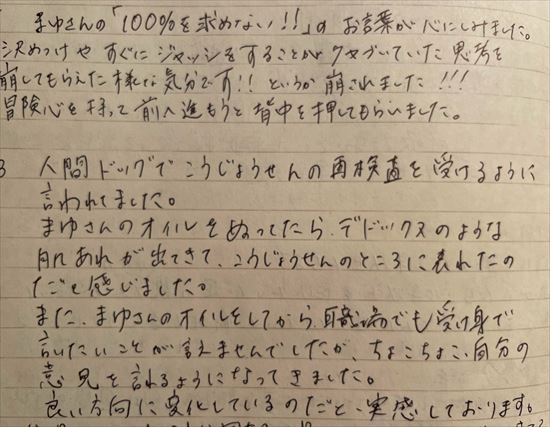 まゆさんの「100%を求めない!!」の お言葉が心にしみました。
決めつけや すぐにジャッジをすることが クセづいていた 思考を
崩してもらえた様な気分です!! というか 崩されました!!!
冒険心を持って 前へ進もうと 背中を押してもらいました。
3 人間ドッグで こうじょうせんの再検査を受けるように
言われてました。
まゆさんのオイルをぬってたら、デドックスのような
肌あれが出てきて、こうじょうせんのところに表れたの
だと感じました。
また、まゆさんのオイルをしてから、職場でも受け身で
言いたいことが言えませんでしたが、ちょこちょこ、自分の
意見を言れるようになってきました。
良い方向に変化しているのだと、実感しております。